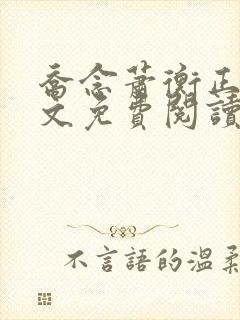 喬念蕭衡正
文免費閱讀
不言語的溫柔